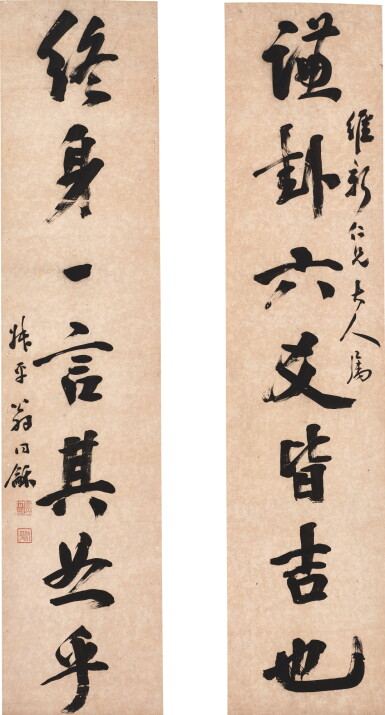 維新仁兄大人屬
謙卦六爻皆吉也
終身一言其恕乎
叔平翁同龢